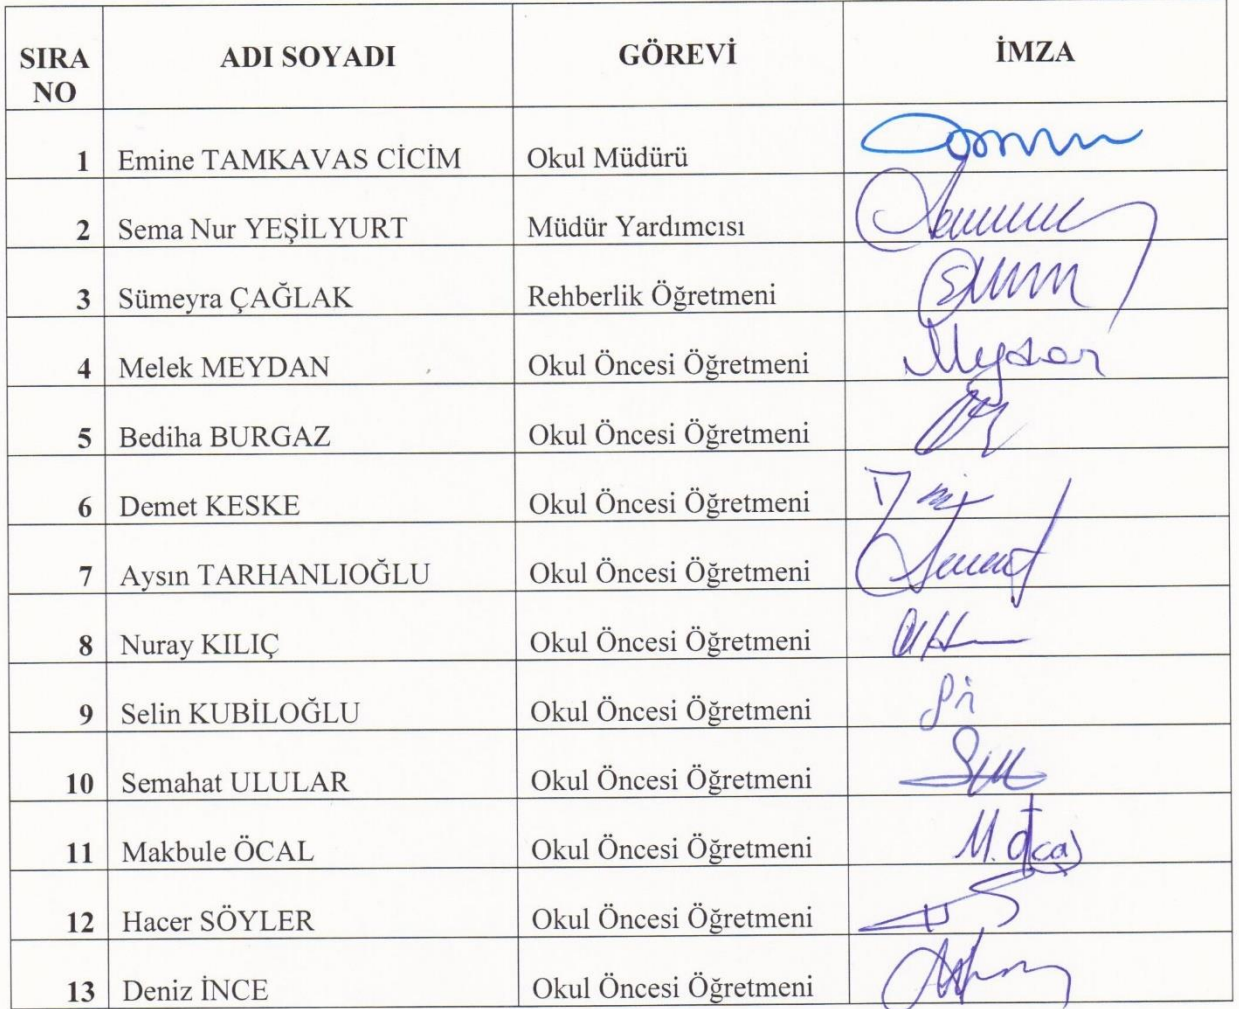 SIRA NO ADI SOYADI GÖREVİ İMZA
1 Emine TAMKAVAS CİCİM Okul Müdürü
2 Sema Nur YEŞİLYURT Müdür Yardımcısı
3 Sümeyra ÇAĞLAK Rehberlik Öğretmeni
4 Melek MEYDAN Okul Öncesi Öğretmeni
5 Bediha BURGAZ Okul Öncesi Öğretmeni
6 Demet KESKE Okul Öncesi Öğretmeni
7 Aysın TARHANLIOĞLU Okul Öncesi Öğretmeni
8 Nuray KILIÇ Okul Öncesi Öğretmeni
9 Selin KUBİLOĞLU Okul Öncesi Öğretmeni
10 Semahat ULULAR Okul Öncesi Öğretmeni
11 Makbule ÖCAL Okul Öncesi Öğretmeni
12 Hacer SÖYLER Okul Öncesi Öğretmeni
13 Deniz İNCE Okul Öncesi Öğretmeni